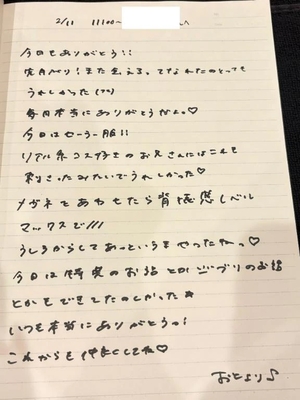 2/11 11:00~ さんへ
今日もありがとう!!
先月ぶり!また会える。てなれたのとっても
うれしかった(??)
毎月本当にありがとうだよ。♡
今日はセーラー服!!
リアル系コス好きのお兄さんにはこれも
刺さったみたいでうれしかった♡
メガネとあわせたら背徳感レベル
マックスで///
うしろからしてあっというまやったねっ♡
今日は時 のお話とかジブリのお話
とかもできてたのしかった★
いつも本当にありがとうっ!
これからも仲良くしてね♡
おとより♪